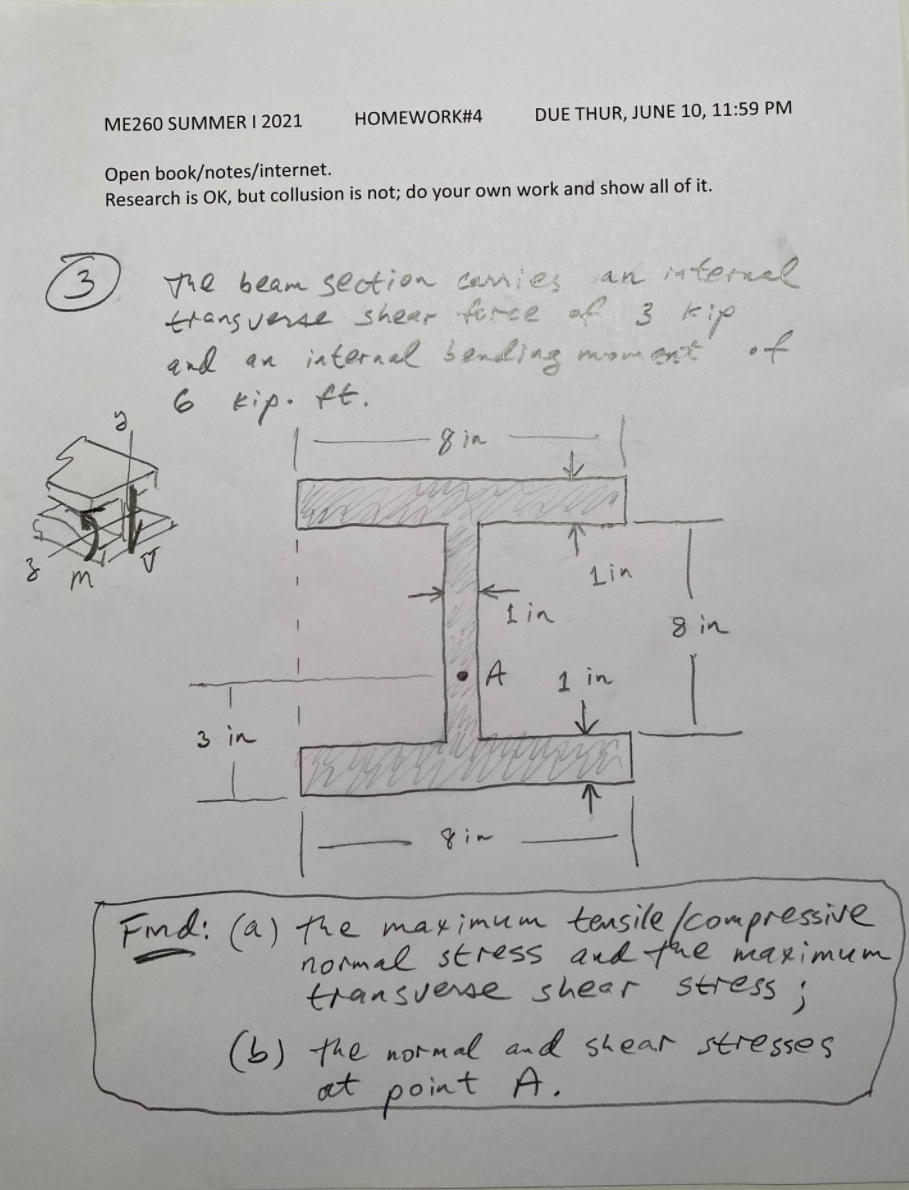 ME260 SUMMER I 2021 HOMEWORK#4 DUE THUR, JUNE 10, 11:59 PM
Open book/notes/internet.
Research is OK, but collusion is not; do your own work and show all of it.
3 The beam section carries an internal
transverse shear force of 3 kip
and an internal bending moment of
6 kip. ft.
y
8 in
z
M
V
1 in
1 in
8 in
A
1 in
3 in
8 in
Find: (a) the maximum tensile/compressive
normal stress and the maximum
transverse shear stress;
(b) the normal and shear stresses
at point A.